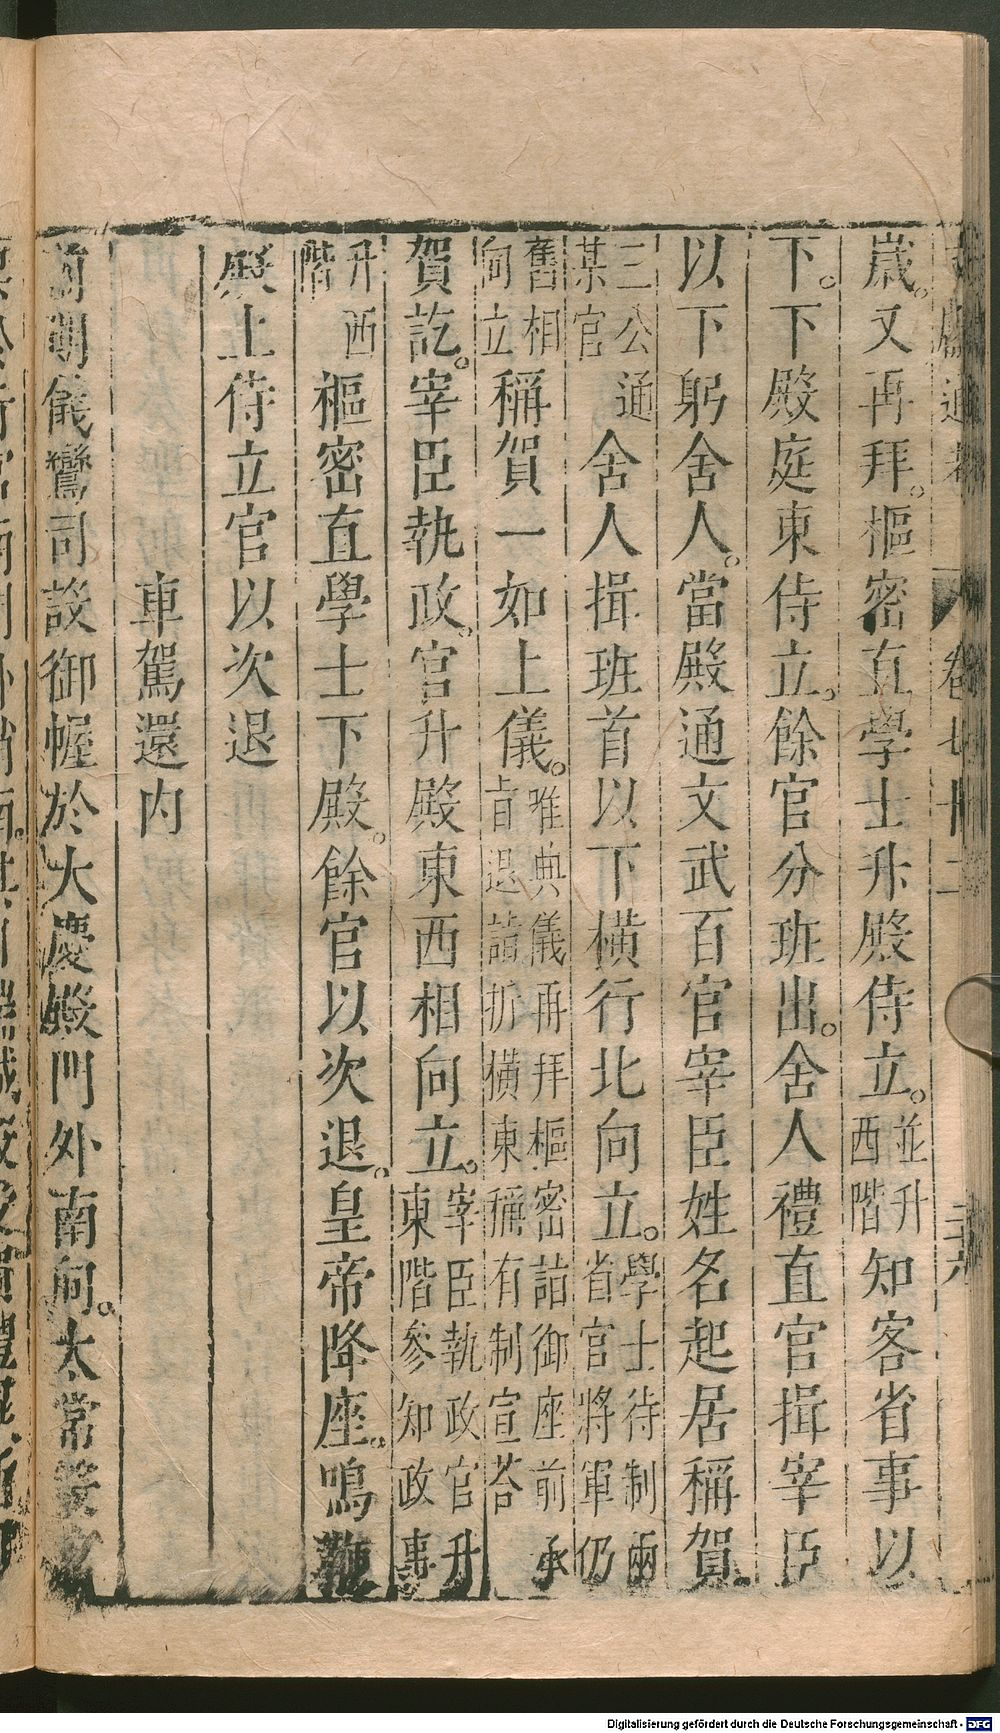 文獻通考
卷七十二
二十六
歲。又再拜。樞密直學士升殿侍立。並升西階知客省事以
下。下殿庭東侍立。餘官分班出。舍人禮直官揖宰臣
以下躬舍人。當殿通文武百官宰臣姓名起居稱賀。
三公通某官舍人揖班首以下橫行北向立。學士待制兩省官將軍仍
舊相向立稱賀一如上儀。唯典儀再拜樞密詣御座前承旨退詣折橫東稱有制宣荅
賀訖。宰臣執政。官升殿東西相向立。宰臣執政官升東階參知政事
升西階樞密直學士下殿。餘官以次退。皇帝降座。鳴鞭
殿上侍立官以次退
車駕還内
前期儀鸞司設御幄於大慶殿門外南向。太常設
Digitalisierung gefördert durch die Deutsche Forschungsgemeinschaft - DFG